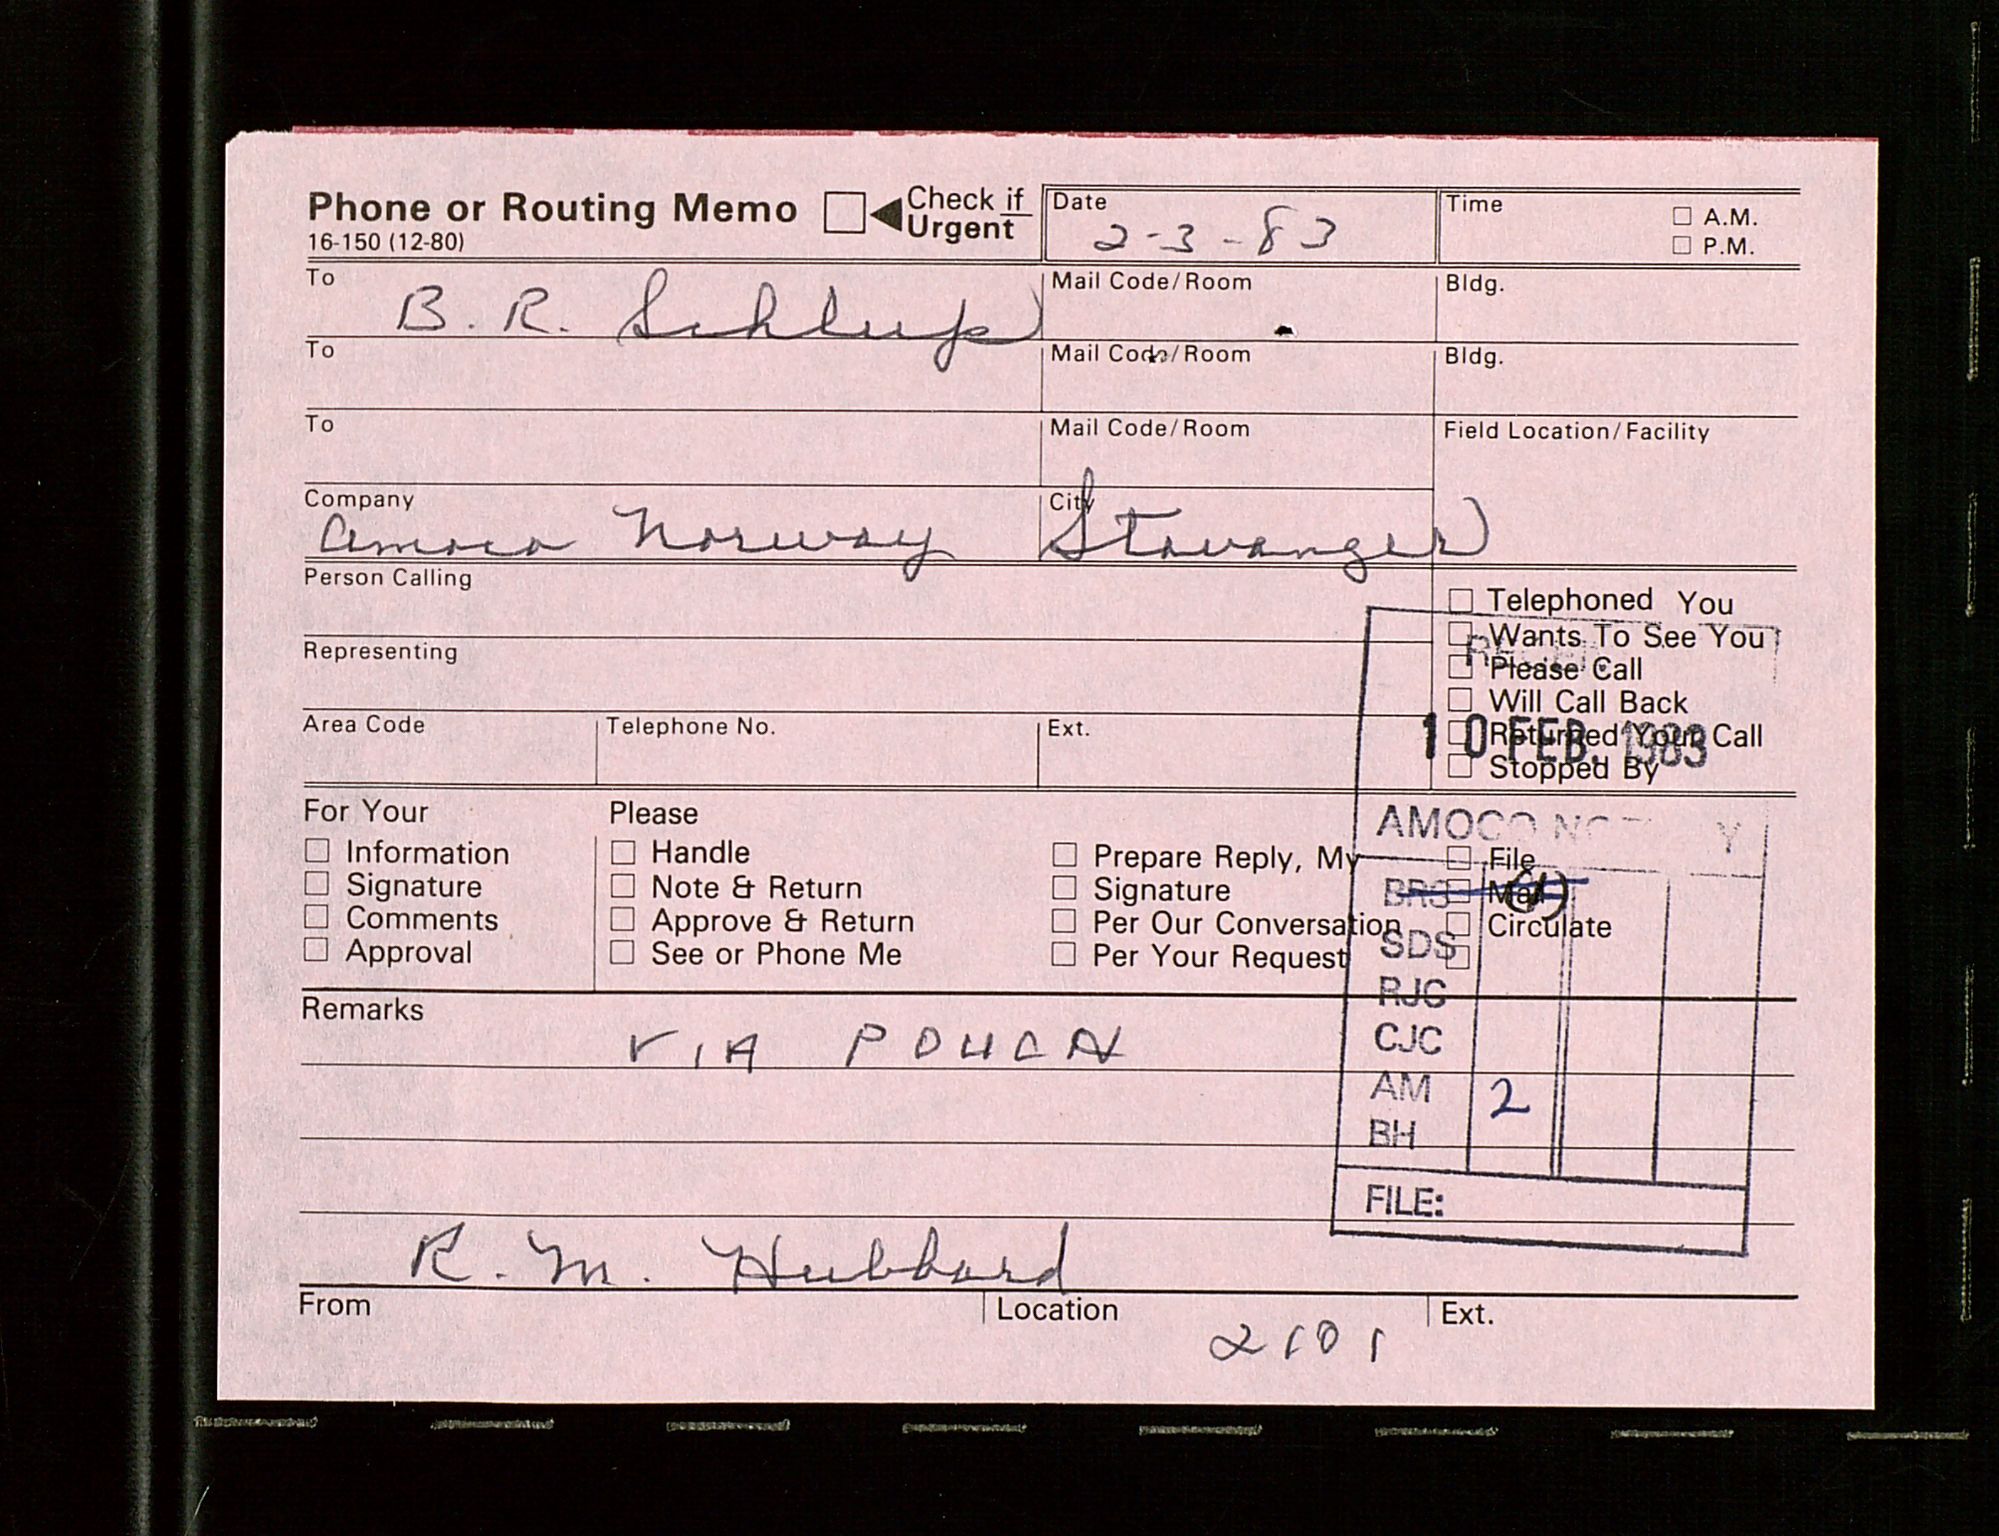 Phone or Routing Memo ☐ Check if Urgent
16-150 (12-80)
Date 2-3-83
Time ☐ A.M. ☐ P.M.
To B. R. Schlup Mail Code/Room Bldg.
To Mail Code/Room Bldg.
To Mail Code/Room Field Location/Facility
Company Amoco Norway City Stavanger
Person Calling
Representing
Area Code Telephone No. Ext.
☐ Telephoned You
☐ Wants To See You
☐ Please Call
☐ Will Call Back
☐ Returned Your Call
☐ Stopped By
10 FEB. 1983
AMOCO
For Your
☐ Information
☐ Signature
☐ Comments
☐ Approval
Please
☐ Handle
☐ Note & Return
☐ Approve & Return
☐ See or Phone Me
☐ Prepare Reply, My
☐ Signature
☐ Per Our Conversation
☐ Per Your Request
☐ File
☐ Mail
☐ Circulate
☐
BRS (1)
SDS
RJC
CJC
AM 2
BH
FILE:
Remarks
VIA POUCH
R. M. Hubbard
From Location 2101 Ext.